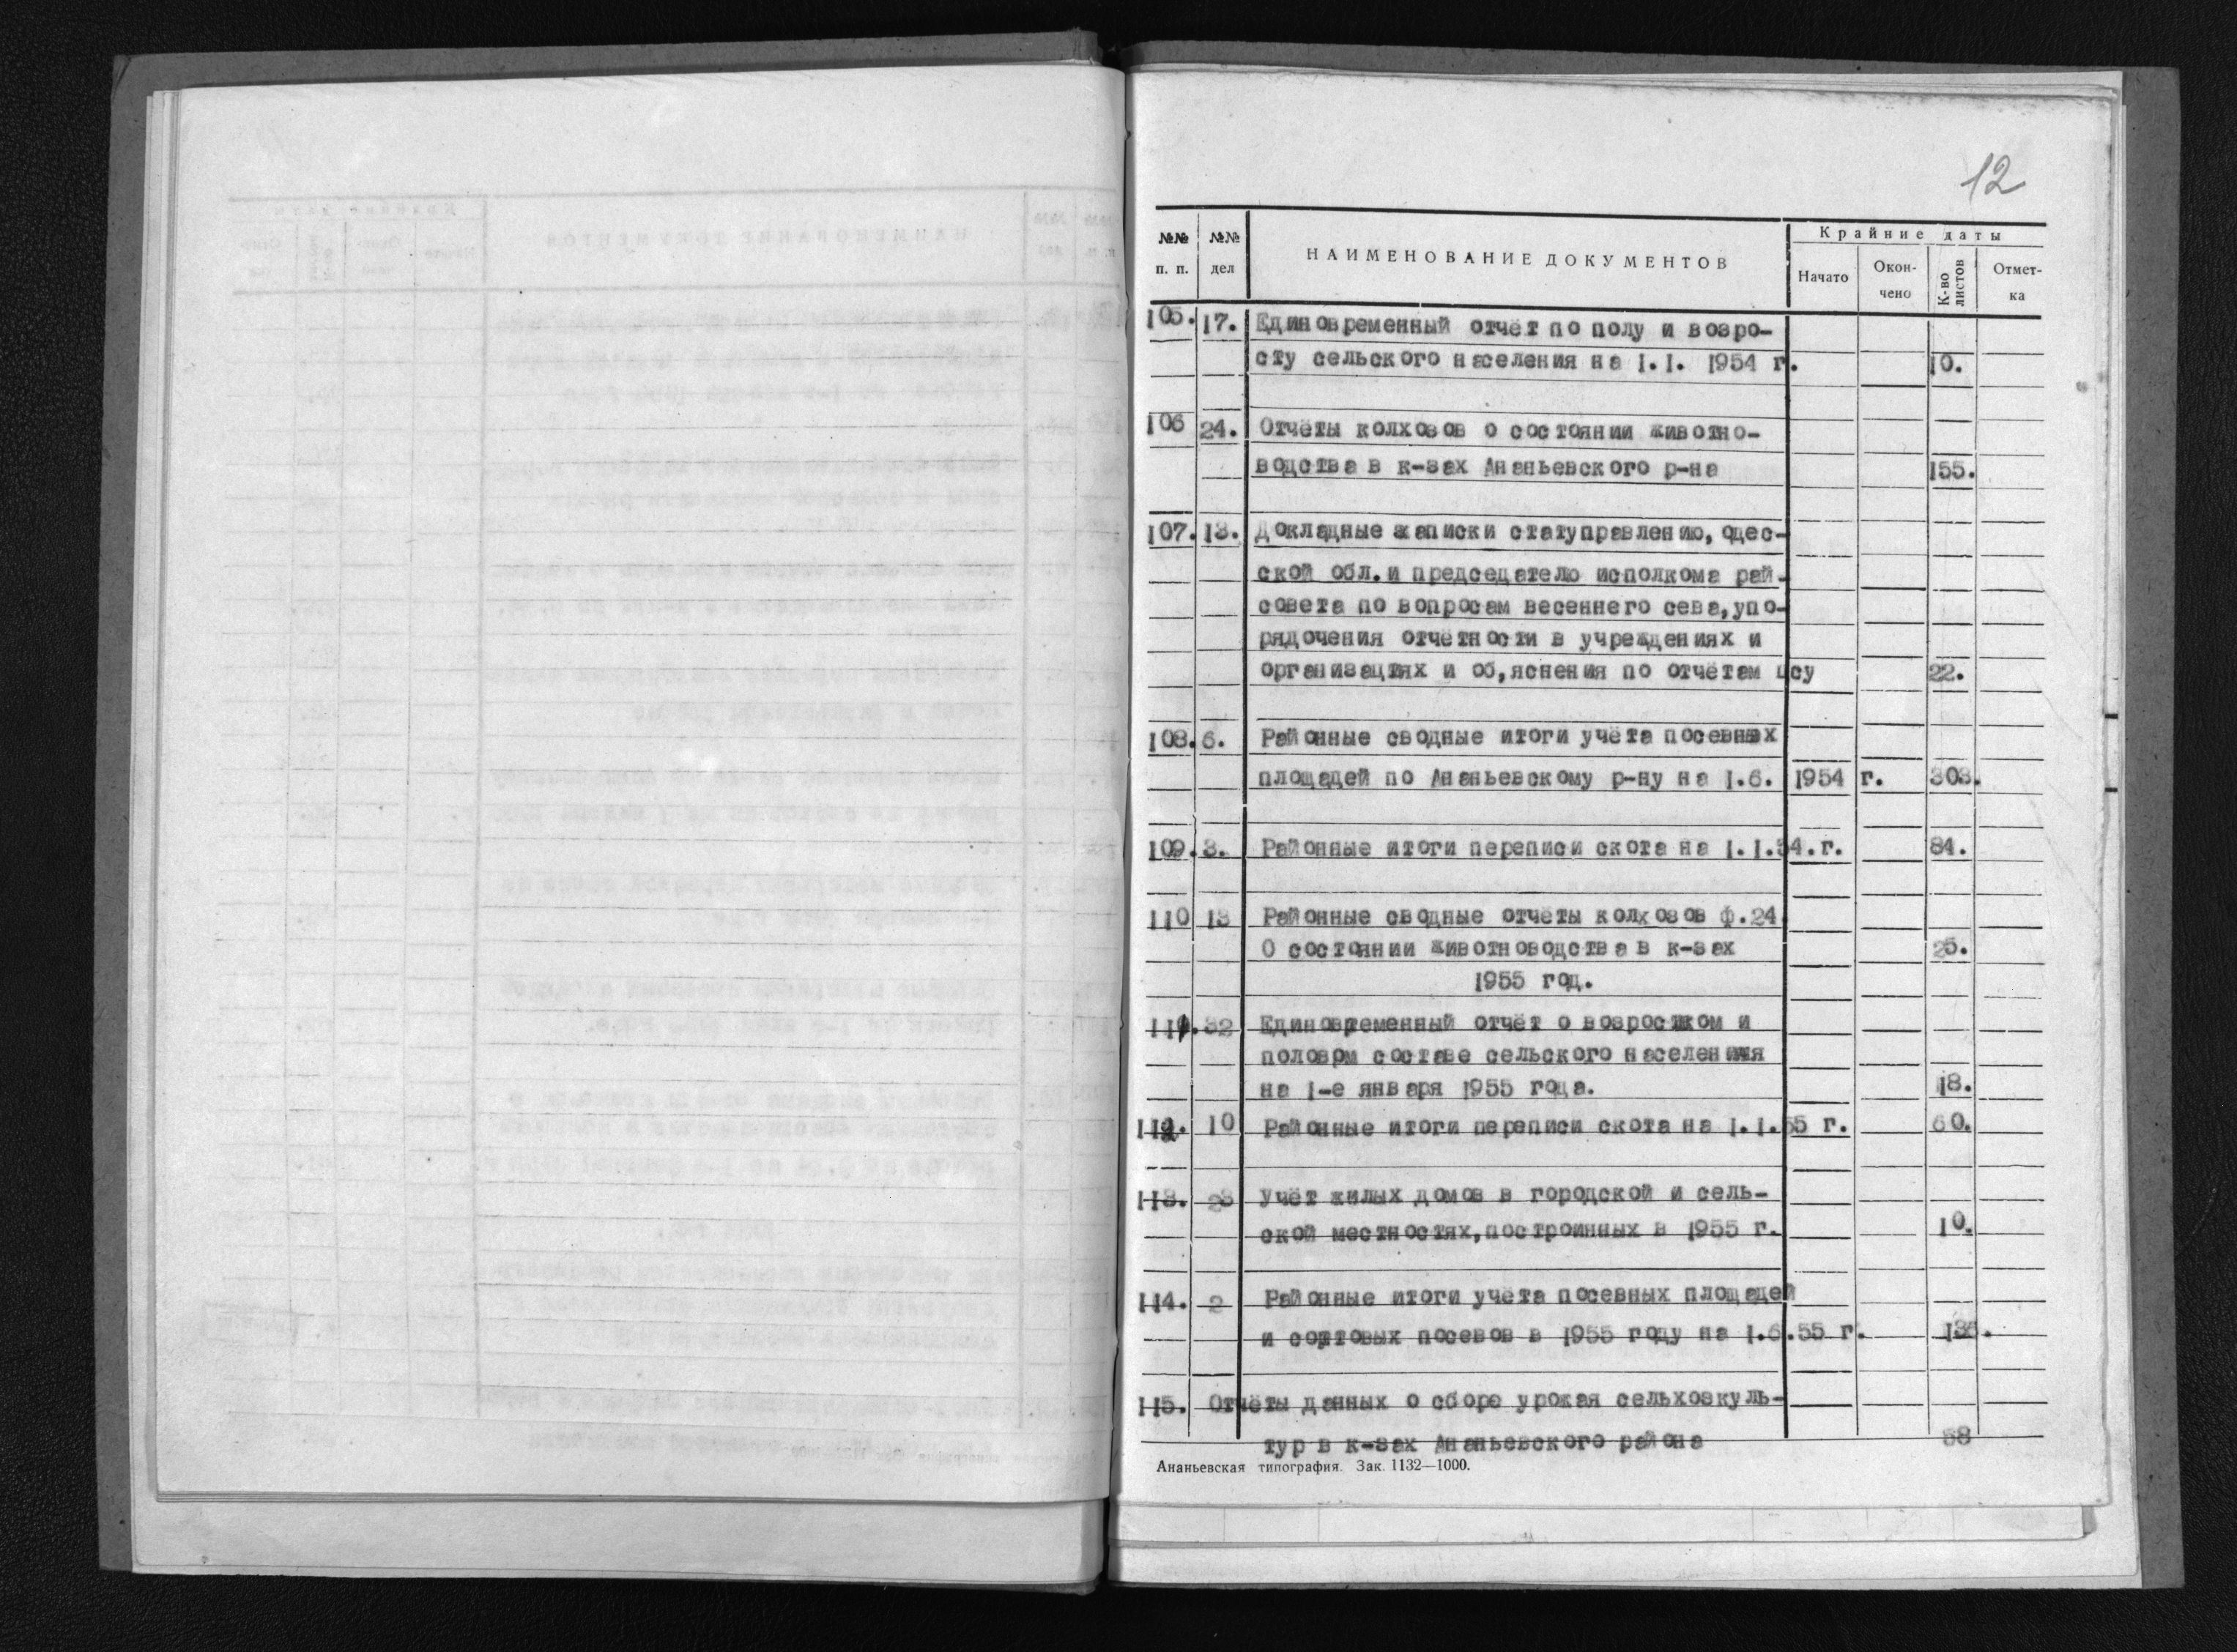 12
№№ п. п. №№ дел НАИМЕНОВАНИЕ ДОКУМЕНТОВ Крайние даты
Начато Окон-чено К-во листов Отмет-ка
105. 17. Единовременный отчёт по полу и возро-
сту сельского населения на 1.1. 1954 г. 10.
106 24. Отчёты колхозов о состоянии животно-
водства в к-зах Ананьевского р-на 155.
107. 13. Докладные записки статуправлению, Одес-
ской обл. и председателю исполкома рай-
совета по вопросам весеннего сева, упо-
рядочения отчётности в учреждениях и
организациях и об,яснения по отчётам цсу 22.
108. 6. Районные сводные итоги учёта посевных
площадей по Ананьевскому р-ну на 1.6. 1954 г. 303.
109. 3. Районные итоги переписи скота на 1.1.54.г. 84.
110 13 Районные сводные отчёты колхозов ф.24
О состоянии животноводства в к-зах 25.
1955 год.
111. 32 Единовременный отчёт о возростном и
половом составе сельского населения
на 1-е января 1955 года. 18.
112. 10 Районные итоги переписи скота на 1.1.55 г. 60.
113. 23 Учёт жилых домов в городской и сель-
ской местностях, построинных в 1955 г. 10.
114. 2 Районные итоги учёта посевных площадей
и сортовых посевов в 1955 году на 1.6.55 г.
115. Отчёты данных о сборе урожая сельхозкуль-
тур в к-зах Ананьевского района 58
Ананьевская типография. Зак. 1132—1000.